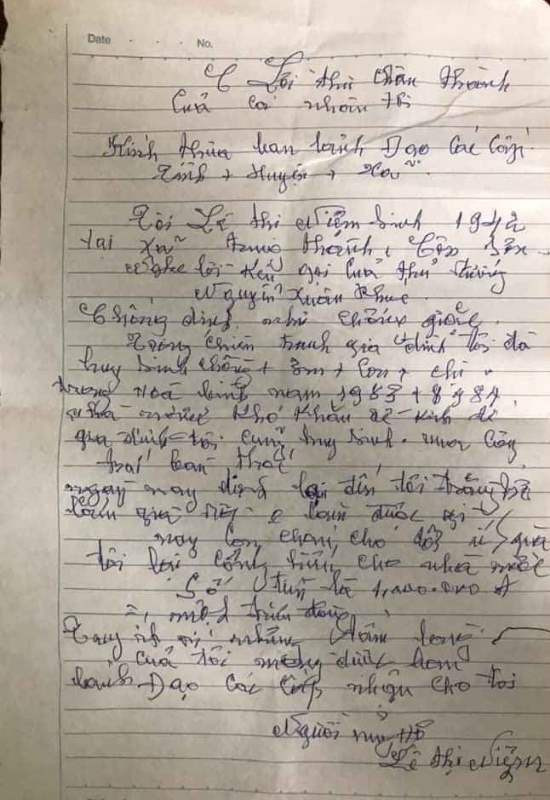 Date . . . No.
Lời thư chân thành
Của cá nhân tôi
Kính thưa ban lãnh Đạo các Cấp
Tỉnh + Huyện + Xã
Tôi Lê thi Niệm sinh 1942
tại xã thành
Nghe lời Kêu gọi Của thủ tướng
Nguyễn Xuân Phúc
Chống dịch như chống giặc
Trong chiến tranh gia đình tôi đã
huy sinh chồng + Em + Con + chi
trong Hoà bình năm 1983 + 8 1984
nhà nước Khó Khăn về Kinh tế
gia đình tôi cũng huy sinh
ngay nay dịch lại đến tôi
nay Con cháu cho
tôi lại cống hiến cho nhà nước
Số tiền là 1,000.000 đ
=, một triệu đồng
Tuy ít ỏi nhưng tấm lòng
của tôi mong được ban
lãnh Đạo các Cấp nhận cho tôi
Người ủng hộ
Lê thị Niệm